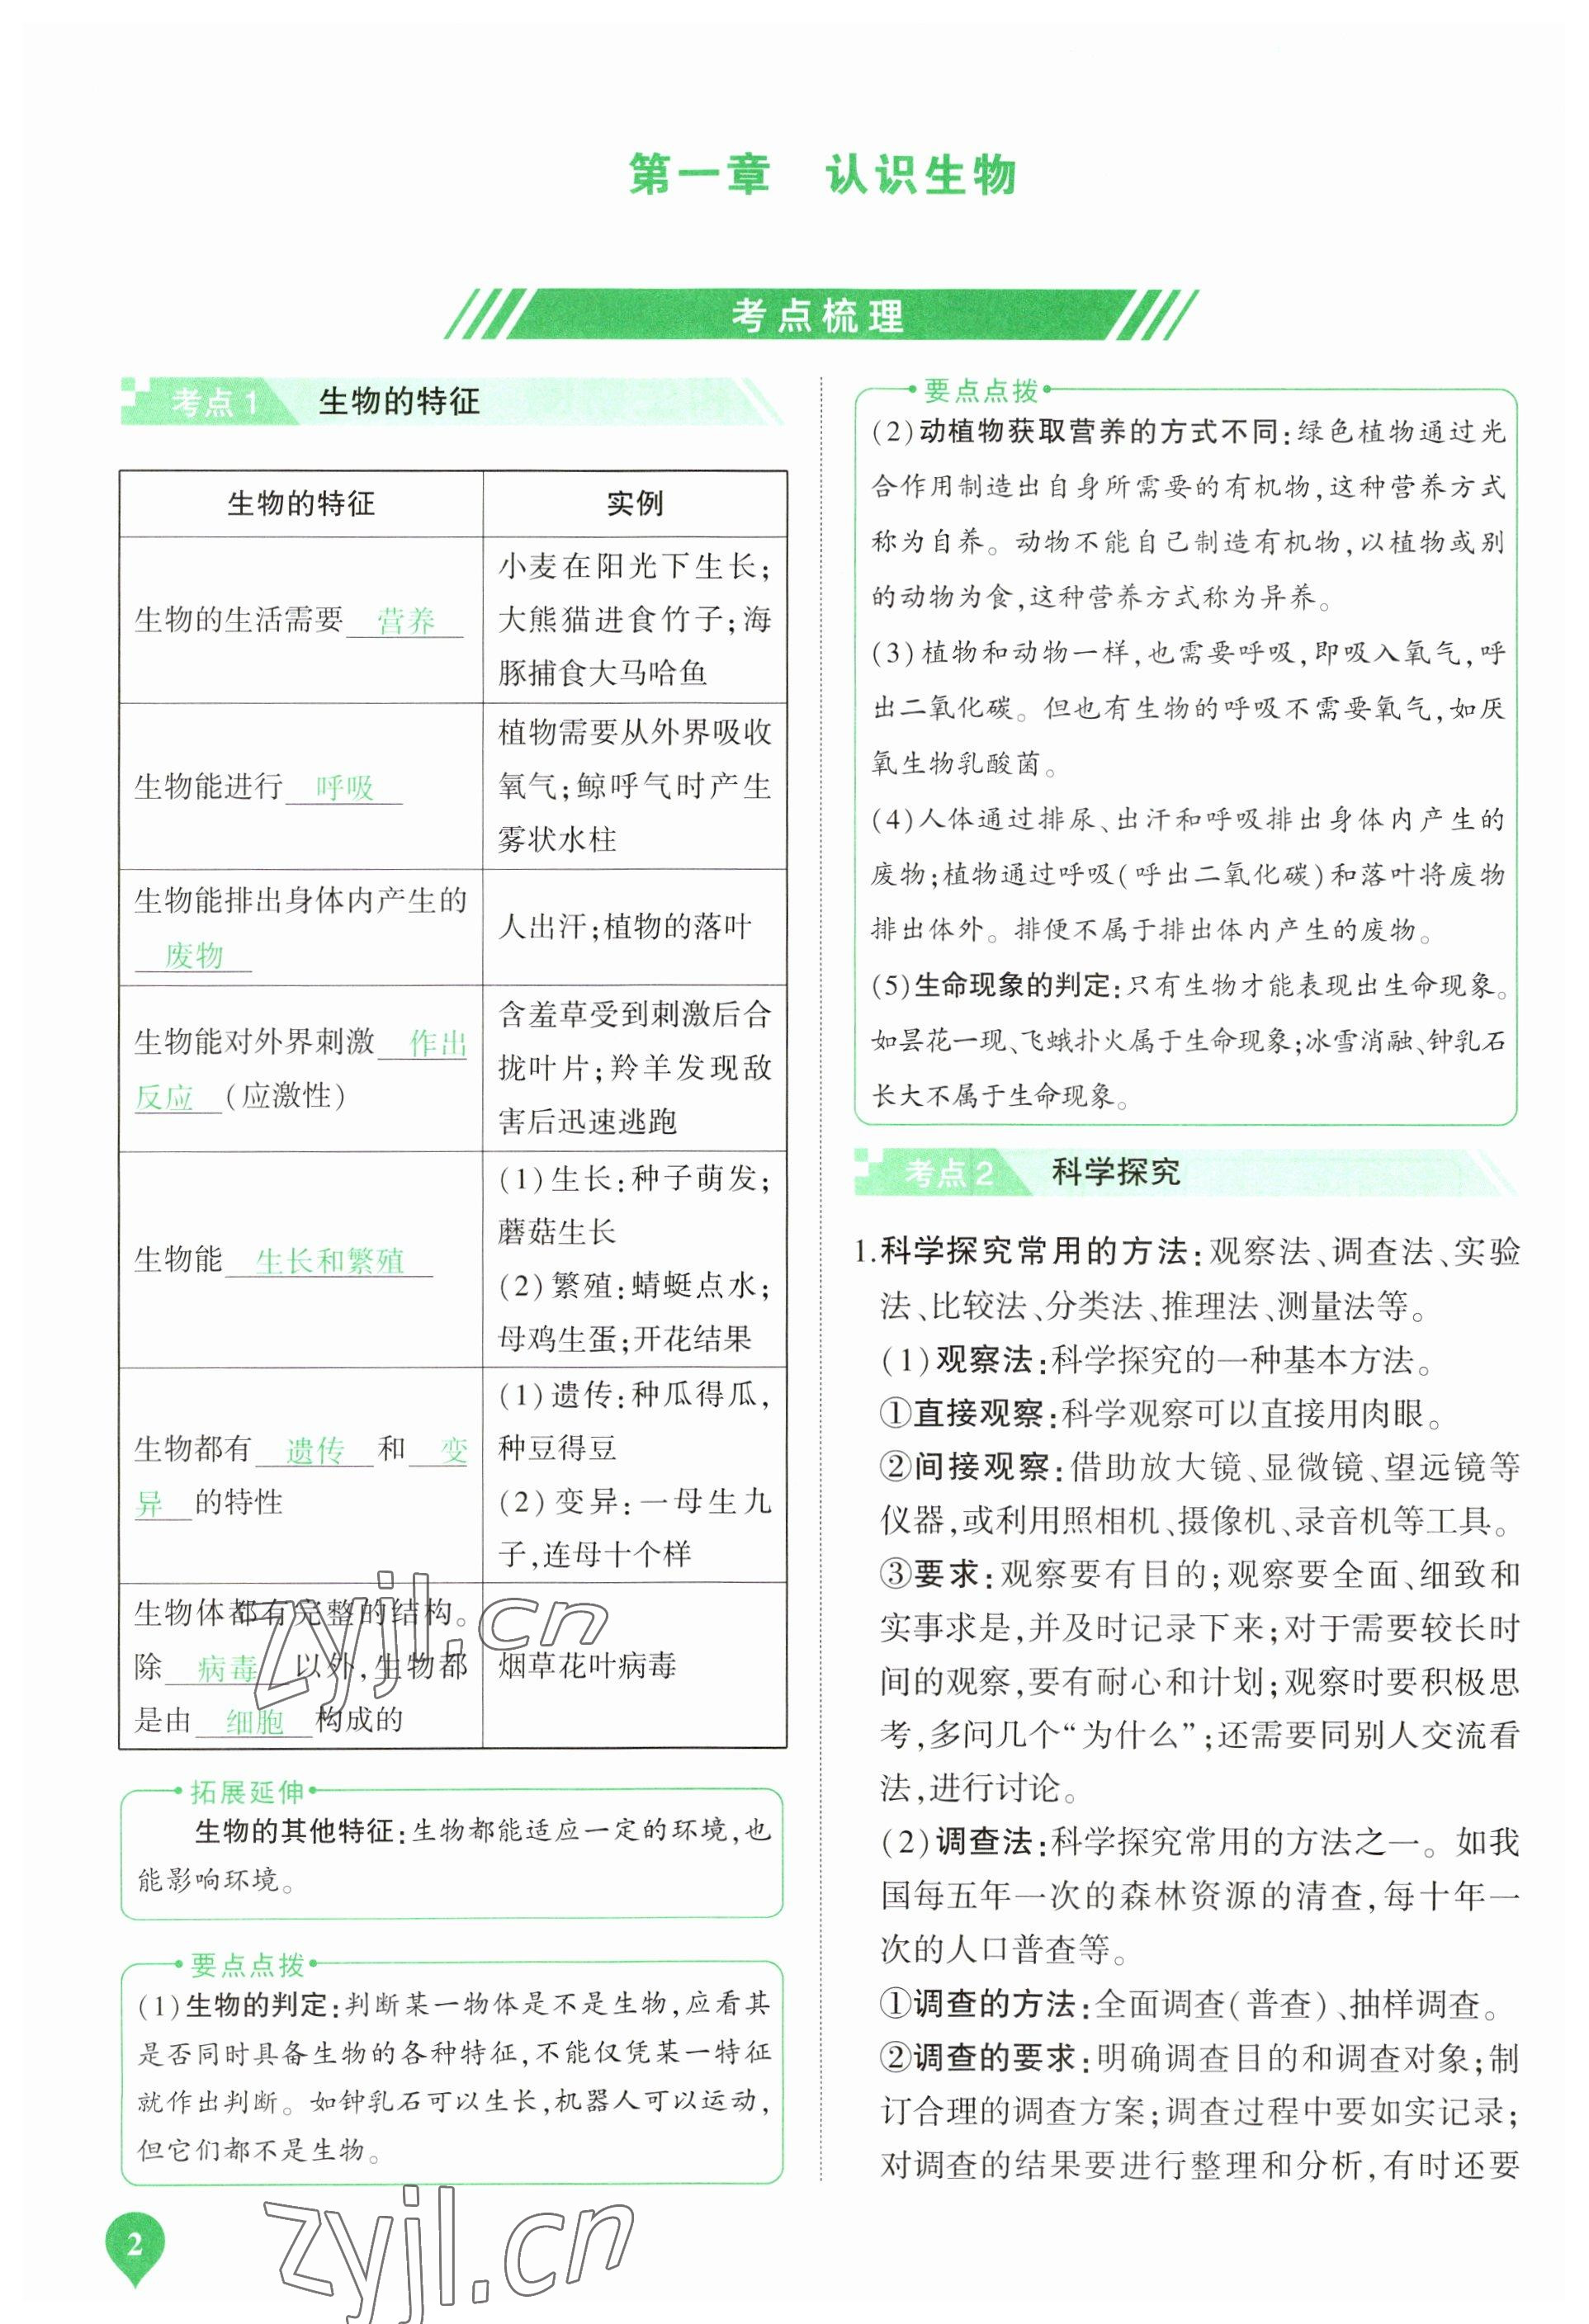 第一章 认识生物
考点梳理
考点1 生物的特征
生物的特征 实例
生物的生活需要 营养
小麦在阳光下生长;
大熊猫进食竹子;海
豚捕食大马哈鱼
生物能进行 呼吸
植物需要从外界吸收
氧气;鲸呼气时产生
雾状水柱
生物能排出身体内产生的
废物
人出汗;植物的落叶
生物能对外界刺激 作出
反应 (应激性)
含羞草受到刺激后合
拢叶片;羚羊发现敌
害后迅速逃跑
生物能 生长和繁殖
(1)生长:种子萌发;
蘑菇生长
(2)繁殖:蜻蜓点水;
母鸡生蛋;开花结果
生物都有 遗传 和 变
异 的特性
(1)遗传:种瓜得瓜,
种豆得豆
(2)变异:一母生九
子,连母十个样
生物体都有完整的结构。
除 病毒 以外,生物都
是由 细胞 构成的
烟草花叶病毒
拓展延伸
生物的其他特征:生物都能适应一定的环境,也
能影响环境。
要点点拨
(1)生物的判定:判断某一物体是不是生物,应看其
是否同时具备生物的各种特征,不能仅凭某一特征
就作出判断。如钟乳石可以生长,机器人可以运动,
但它们都不是生物。
要点点拨
(2)动植物获取营养的方式不同:绿色植物通过光
合作用制造出自身所需要的有机物,这种营养方式
称为自养。动物不能自己制造有机物,以植物或别
的动物为食,这种营养方式称为异养。
(3)植物和动物一样,也需要呼吸,即吸入氧气,呼
出二氧化碳。但也有生物的呼吸不需要氧气,如厌
氧生物乳酸菌。
(4)人体通过排尿、出汗和呼吸排出身体内产生的
废物;植物通过呼吸(呼出二氧化碳)和落叶将废物
排出体外。排便不属于排出体内产生的废物。
(5)生命现象的判定:只有生物才能表现出生命现象。
如昙花一现、飞蛾扑火属于生命现象;冰雪消融、钟乳石
长大不属于生命现象。
考点2 科学探究
1.科学探究常用的方法:观察法、调查法、实验
法、比较法、分类法、推理法、测量法等。
(1)观察法:科学探究的一种基本方法。
①直接观察:科学观察可以直接用肉眼。
②间接观察:借助放大镜、显微镜、望远镜等
仪器,或利用照相机、摄像机、录音机等工具。
③要求:观察要有目的;观察要全面、细致和
实事求是,并及时记录下来;对于需要较长时
间的观察,要有耐心和计划;观察时要积极思
考,多问几个“为什么”;还需要同别人交流看
法,进行讨论。
(2)调查法:科学探究常用的方法之一。如我
国每五年一次的森林资源的清查,每十年一
次的人口普查等。
①调查的方法:全面调查(普查)、抽样调查。
②调查的要求:明确调查目的和调查对象;制
订合理的调查方案;调查过程中要如实记录;
对调查的结果要进行整理和分析,有时还要
2
zyjl.cn
zyjl.cn